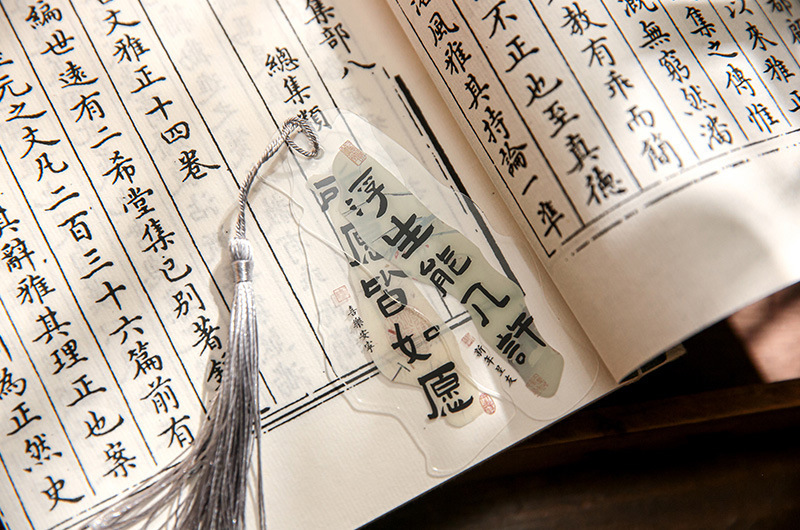 以來雅正
集之傳惟
溉無窮然潘
教有乖而簡
不正也至真德
風雅其持論一準
集部八
總集類
文雅正十四卷
編世遠有二希堂集已別著
元之文凡二百三十六篇前有
其辭雅其理正也案
為正然史
浮生能几許
愿皆如愿
喜樂安寧